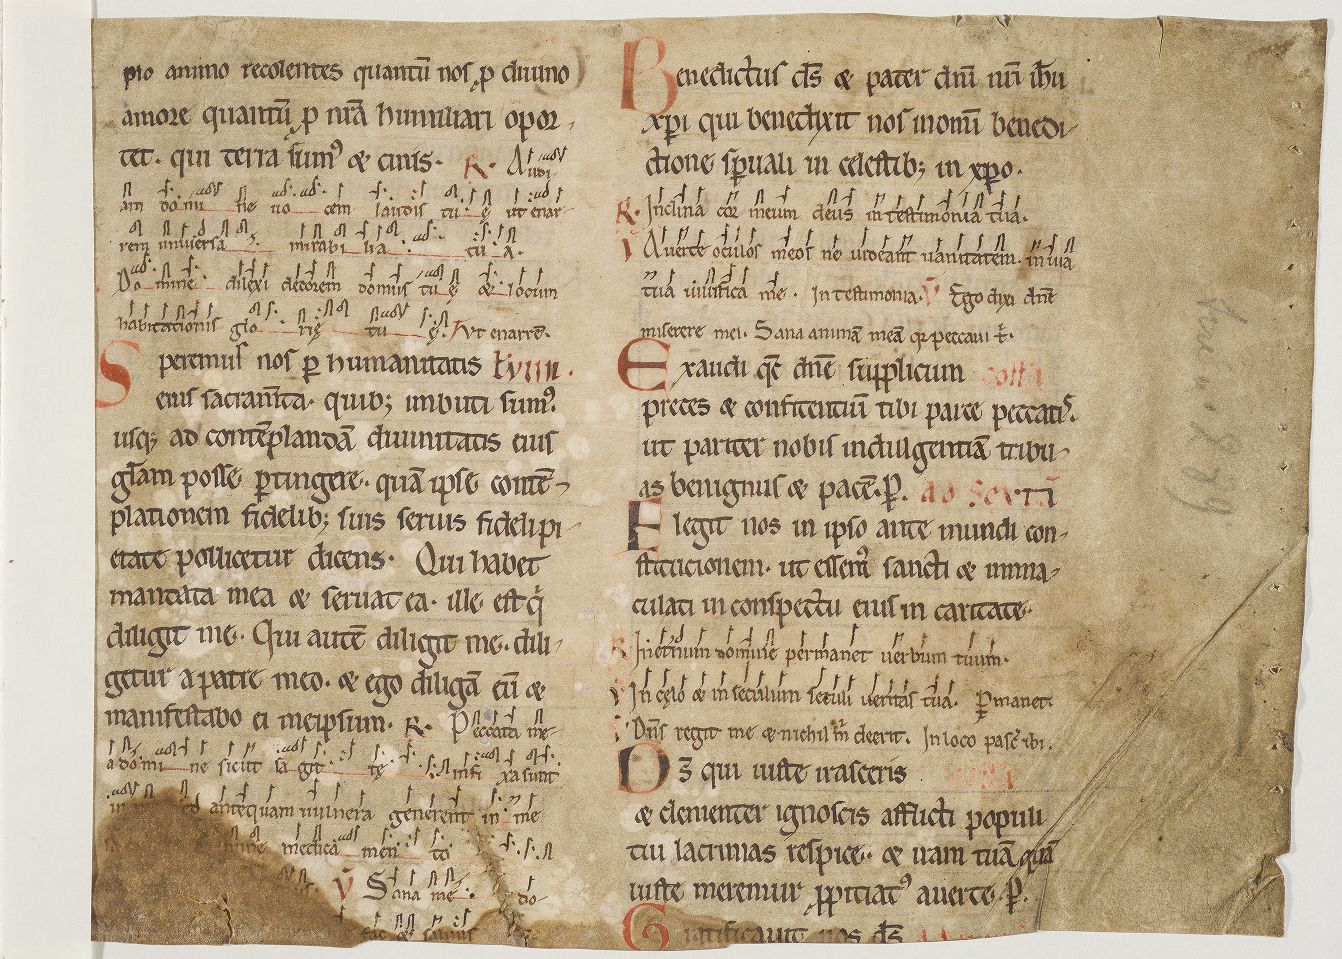 pio animo recolentes quantū nos ꝑ diuino
amore quantū ꝑ nr̄a humiliari opor-
tet. qui terra sumꝰ & cinis. R. Audi
am domi ne uo cem laudis tu ę ut enar-
rem uniuersa mirabi lia tu a.
Do mine dilexi decorem domus tu ę & locum
habitationis glo rię tu ę. Vt enarrē.
Speremus nos ꝑ humanitatis
eius sacram̄ta. quib; imbuti sumꝰ.
usq; ad contēplandā diuinitatis eius
gl̄am posse ꝑtingere. quā ipse contē-
plationem fidelib; suis seruis fideli pi-
etate pollicetur dicens. Qui habet
mandata mea & seruat ea. ille est q̇
diligit me. Qui autē diligit me. dili-
getur a patre meo. & ego diligā eū &
manifestabo ei meipsum. R. Peccata me-
a domi ne sicut sa git tę infi xa sunt
in antequam uulnera generent in me
mine medica men to
V Sana me do-
Benedictus ds̄ & pater dn̄i nr̄i ih̄u
xp̄i qui benedixit nos in om̄i benedi-
ctione sp̄uali in celestib; in xp̄o.
R. Inclina cor meum deus in testimonia tua.
V Auerte oculos meos ne uideant uanitatem. in uia
tua uiuifica me. In testimonia. V Ego dixi dn̄e
miserere mei. Sana animā meā q̄ peccaui t.
Exaudi q̄s dn̄e supplicum coll̄a
preces & confitentiū tibi parce peccatis.
ut pariter nobis indulgentiā tribu-
as benignus & pacē. P. ad Sextā
Elegit nos in ipso ante mundi con-
stitucionem. ut essemꝰ sancti & imma-
culati in conspectu eius in caritate.
R In et̄num domine permanet uerbum tuum.
V In cęlo & in seculum seculi ueritas tua. Pmanet.
V Dn̄s regit me & nichil m̄ deerit. In loco pasc̄ ibi.
Ds̄ qui iuste irasceris coll̄a
& clementer ignoscis afflicti populi
tui lacrimas respice. & iram tuā quā
iuste meremur ꝓpitiatꝰ auerte. P.
Iustificauit nos ds̄